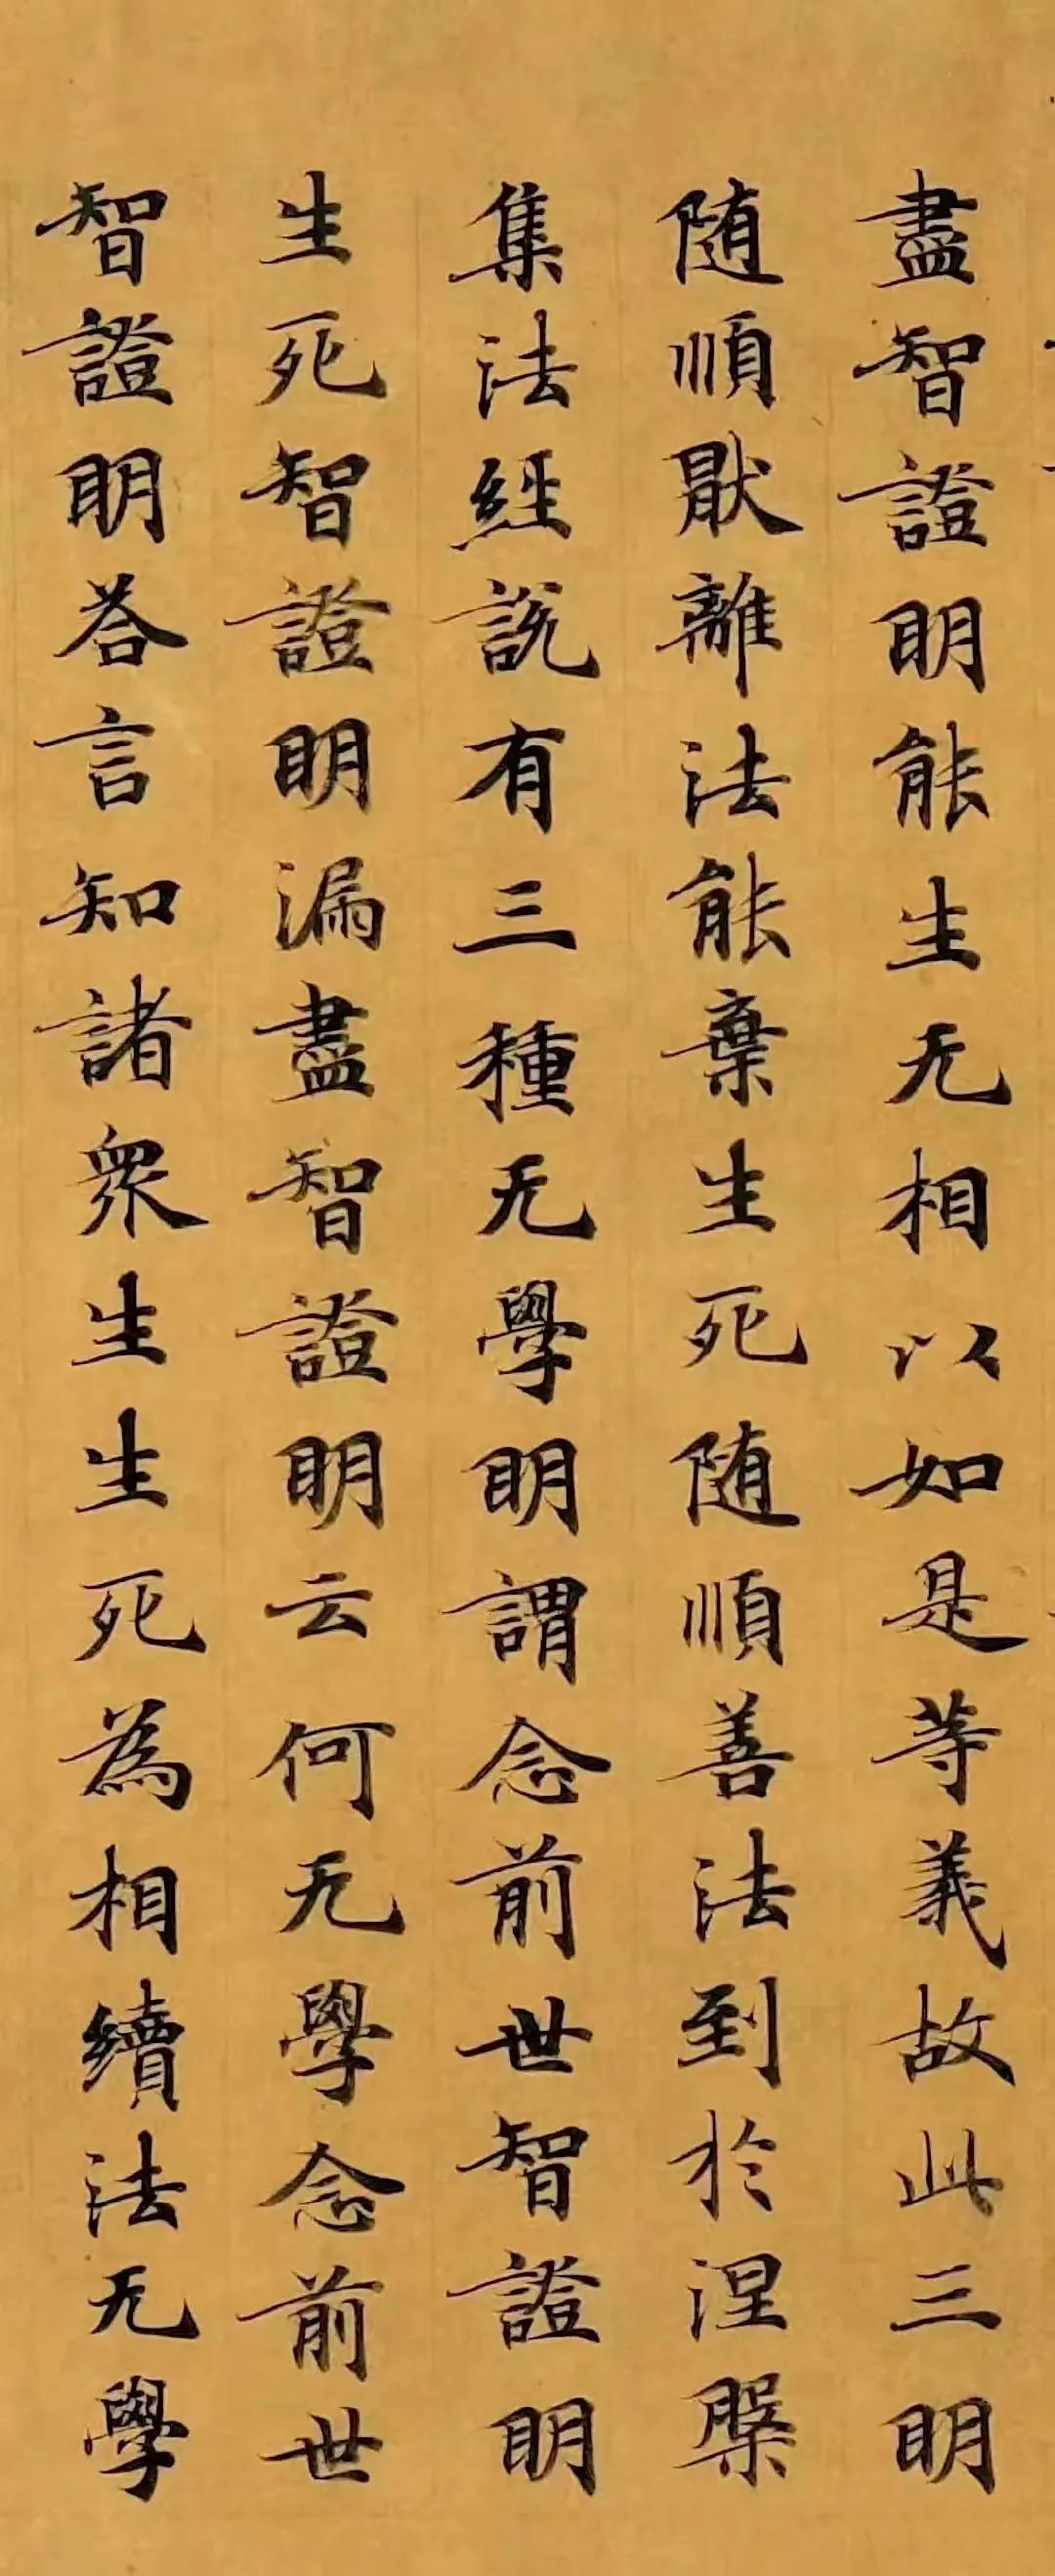 盡智證明能生无相以如是等義故此三明
随順猒離法能棄生死随順善法到於涅槃
集法經說有三種无學明謂念前世智證明
生死智證明漏盡智證明云何无學念前世
智證明荅言知諸眾生生死為相續法无學